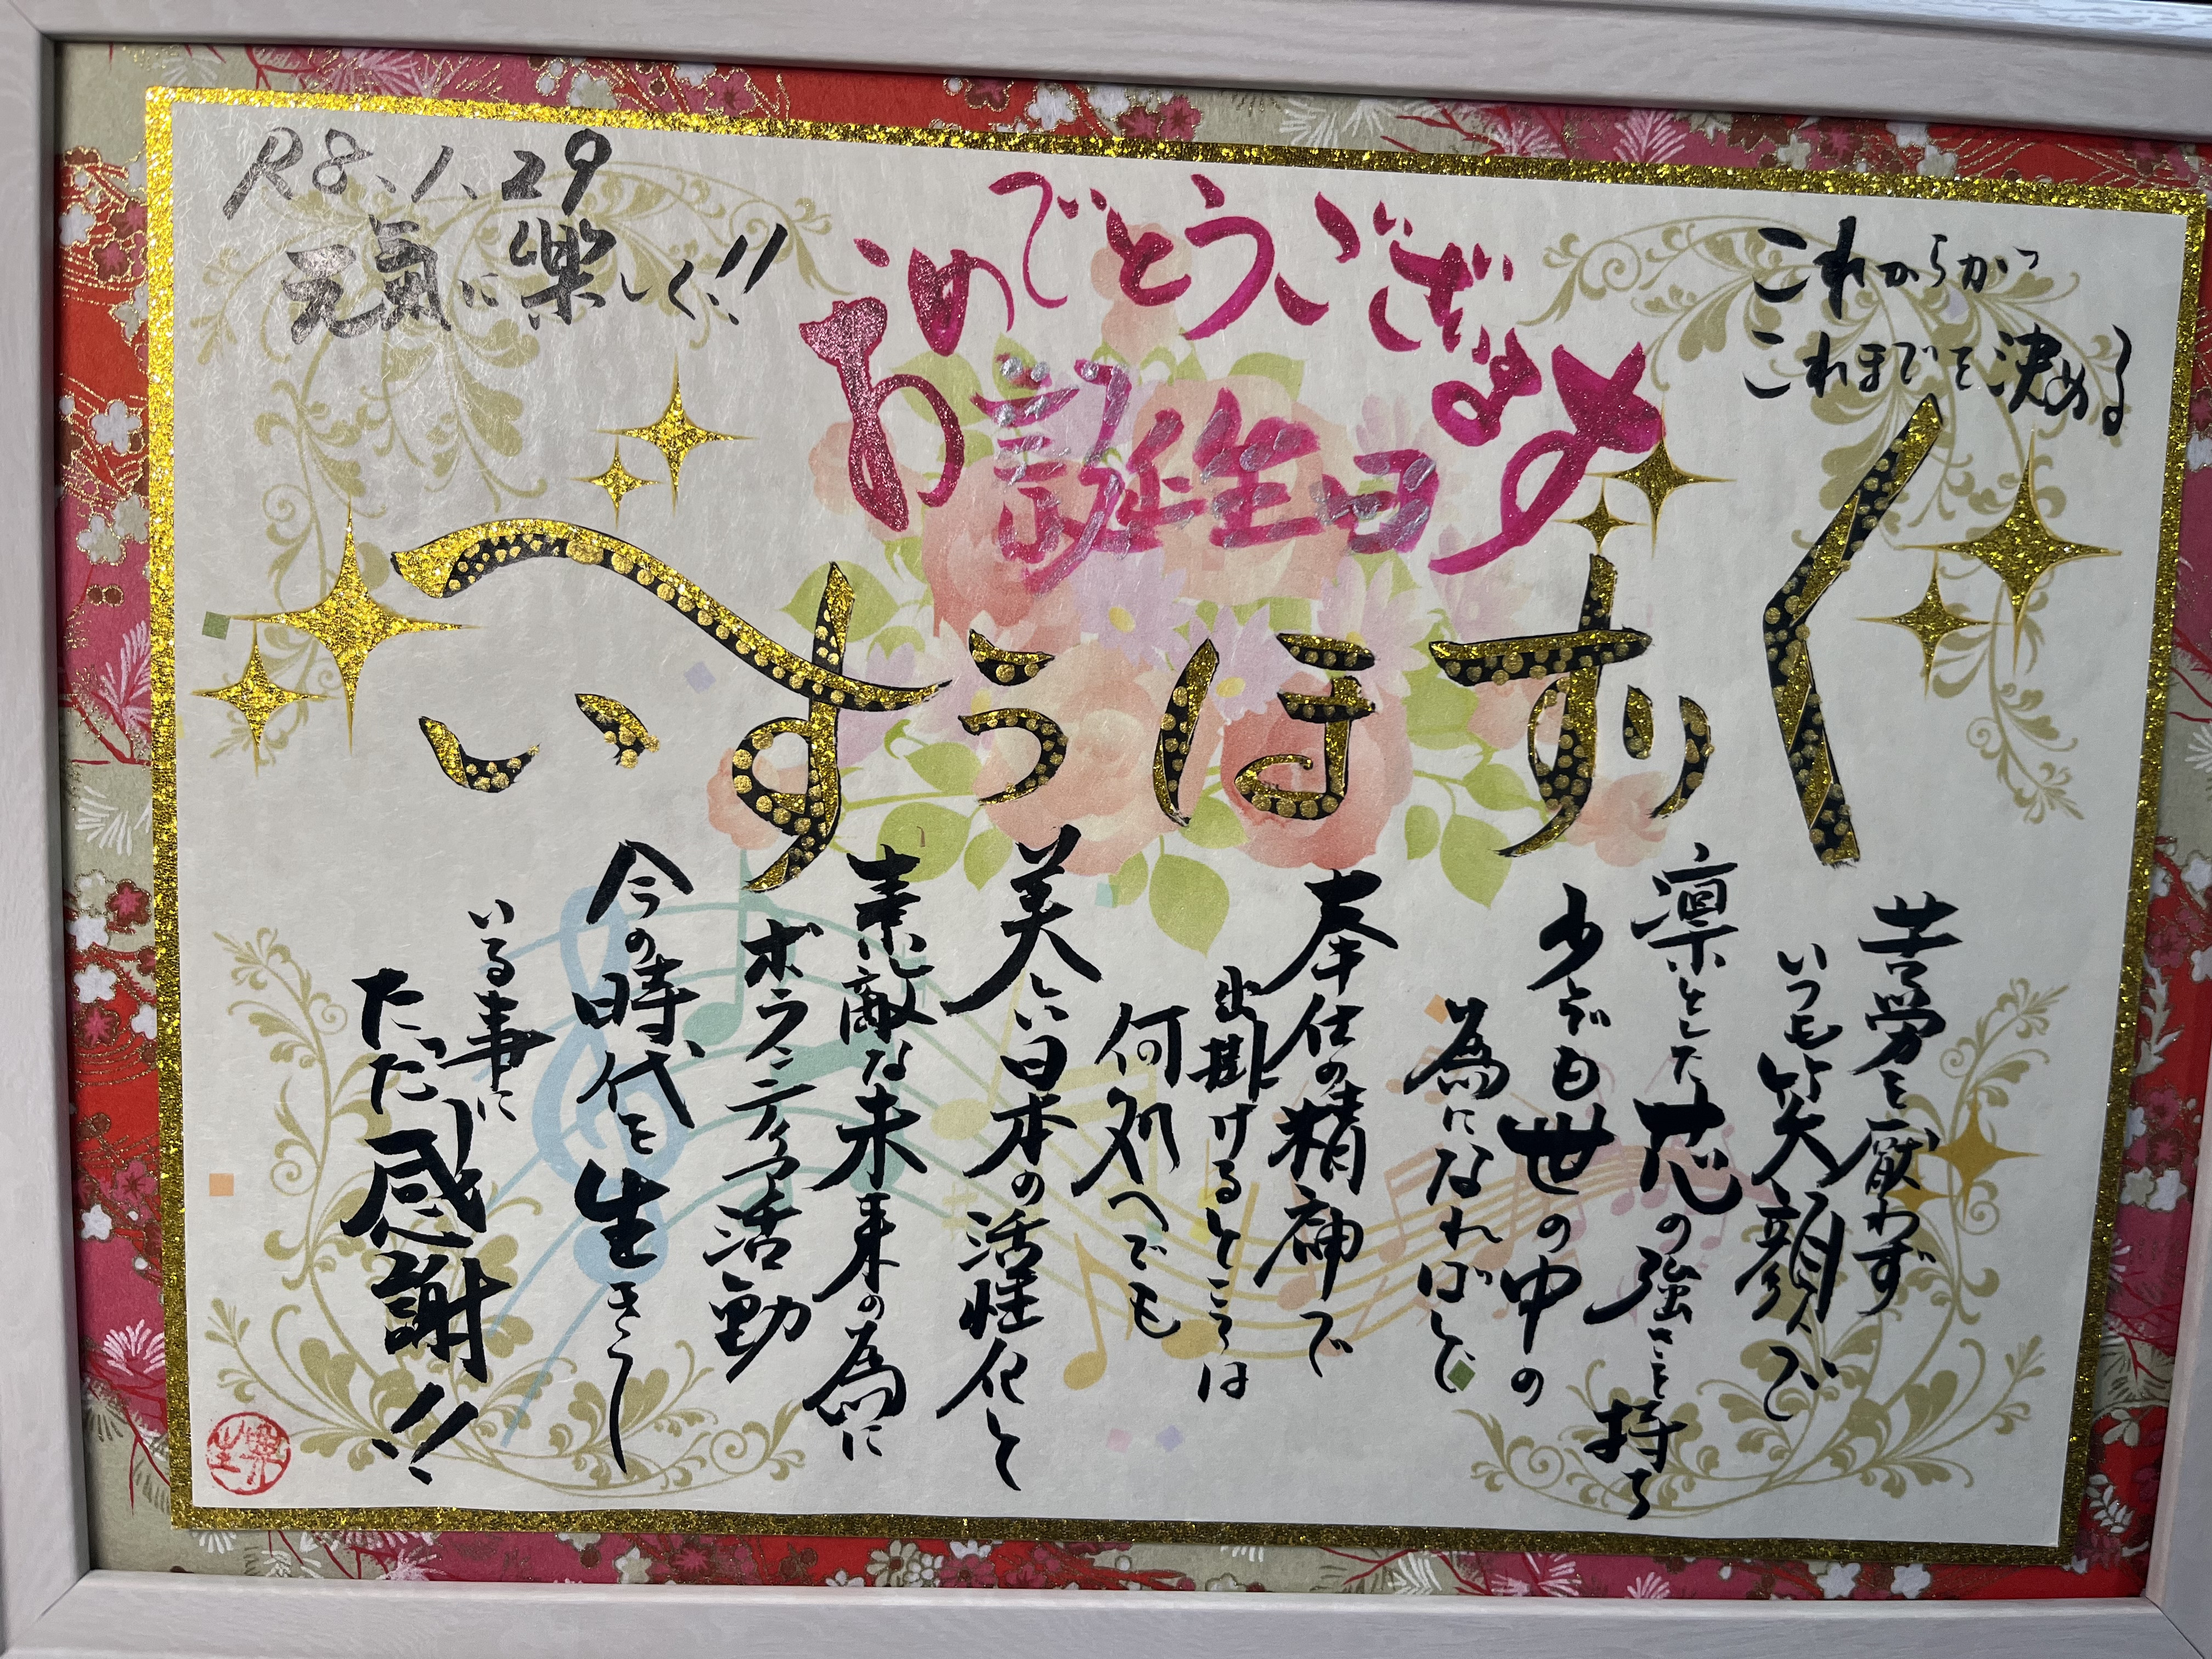 R8.1.29
元氣に楽しく!!
おめでとうございます
お誕生日
これからが
これまでを決める
くりすほうすい
苦労を厭わず
いつも笑顔で
凛とした芯の強さを持ち
少しでも世の中の
為になればと
奉仕の精神で
出掛けるところは
何処へでも
美しい日本の活性化と
素敵な未来の為に
ボランティア活動
今の時代を生きて
いる事に
ただ感謝!!